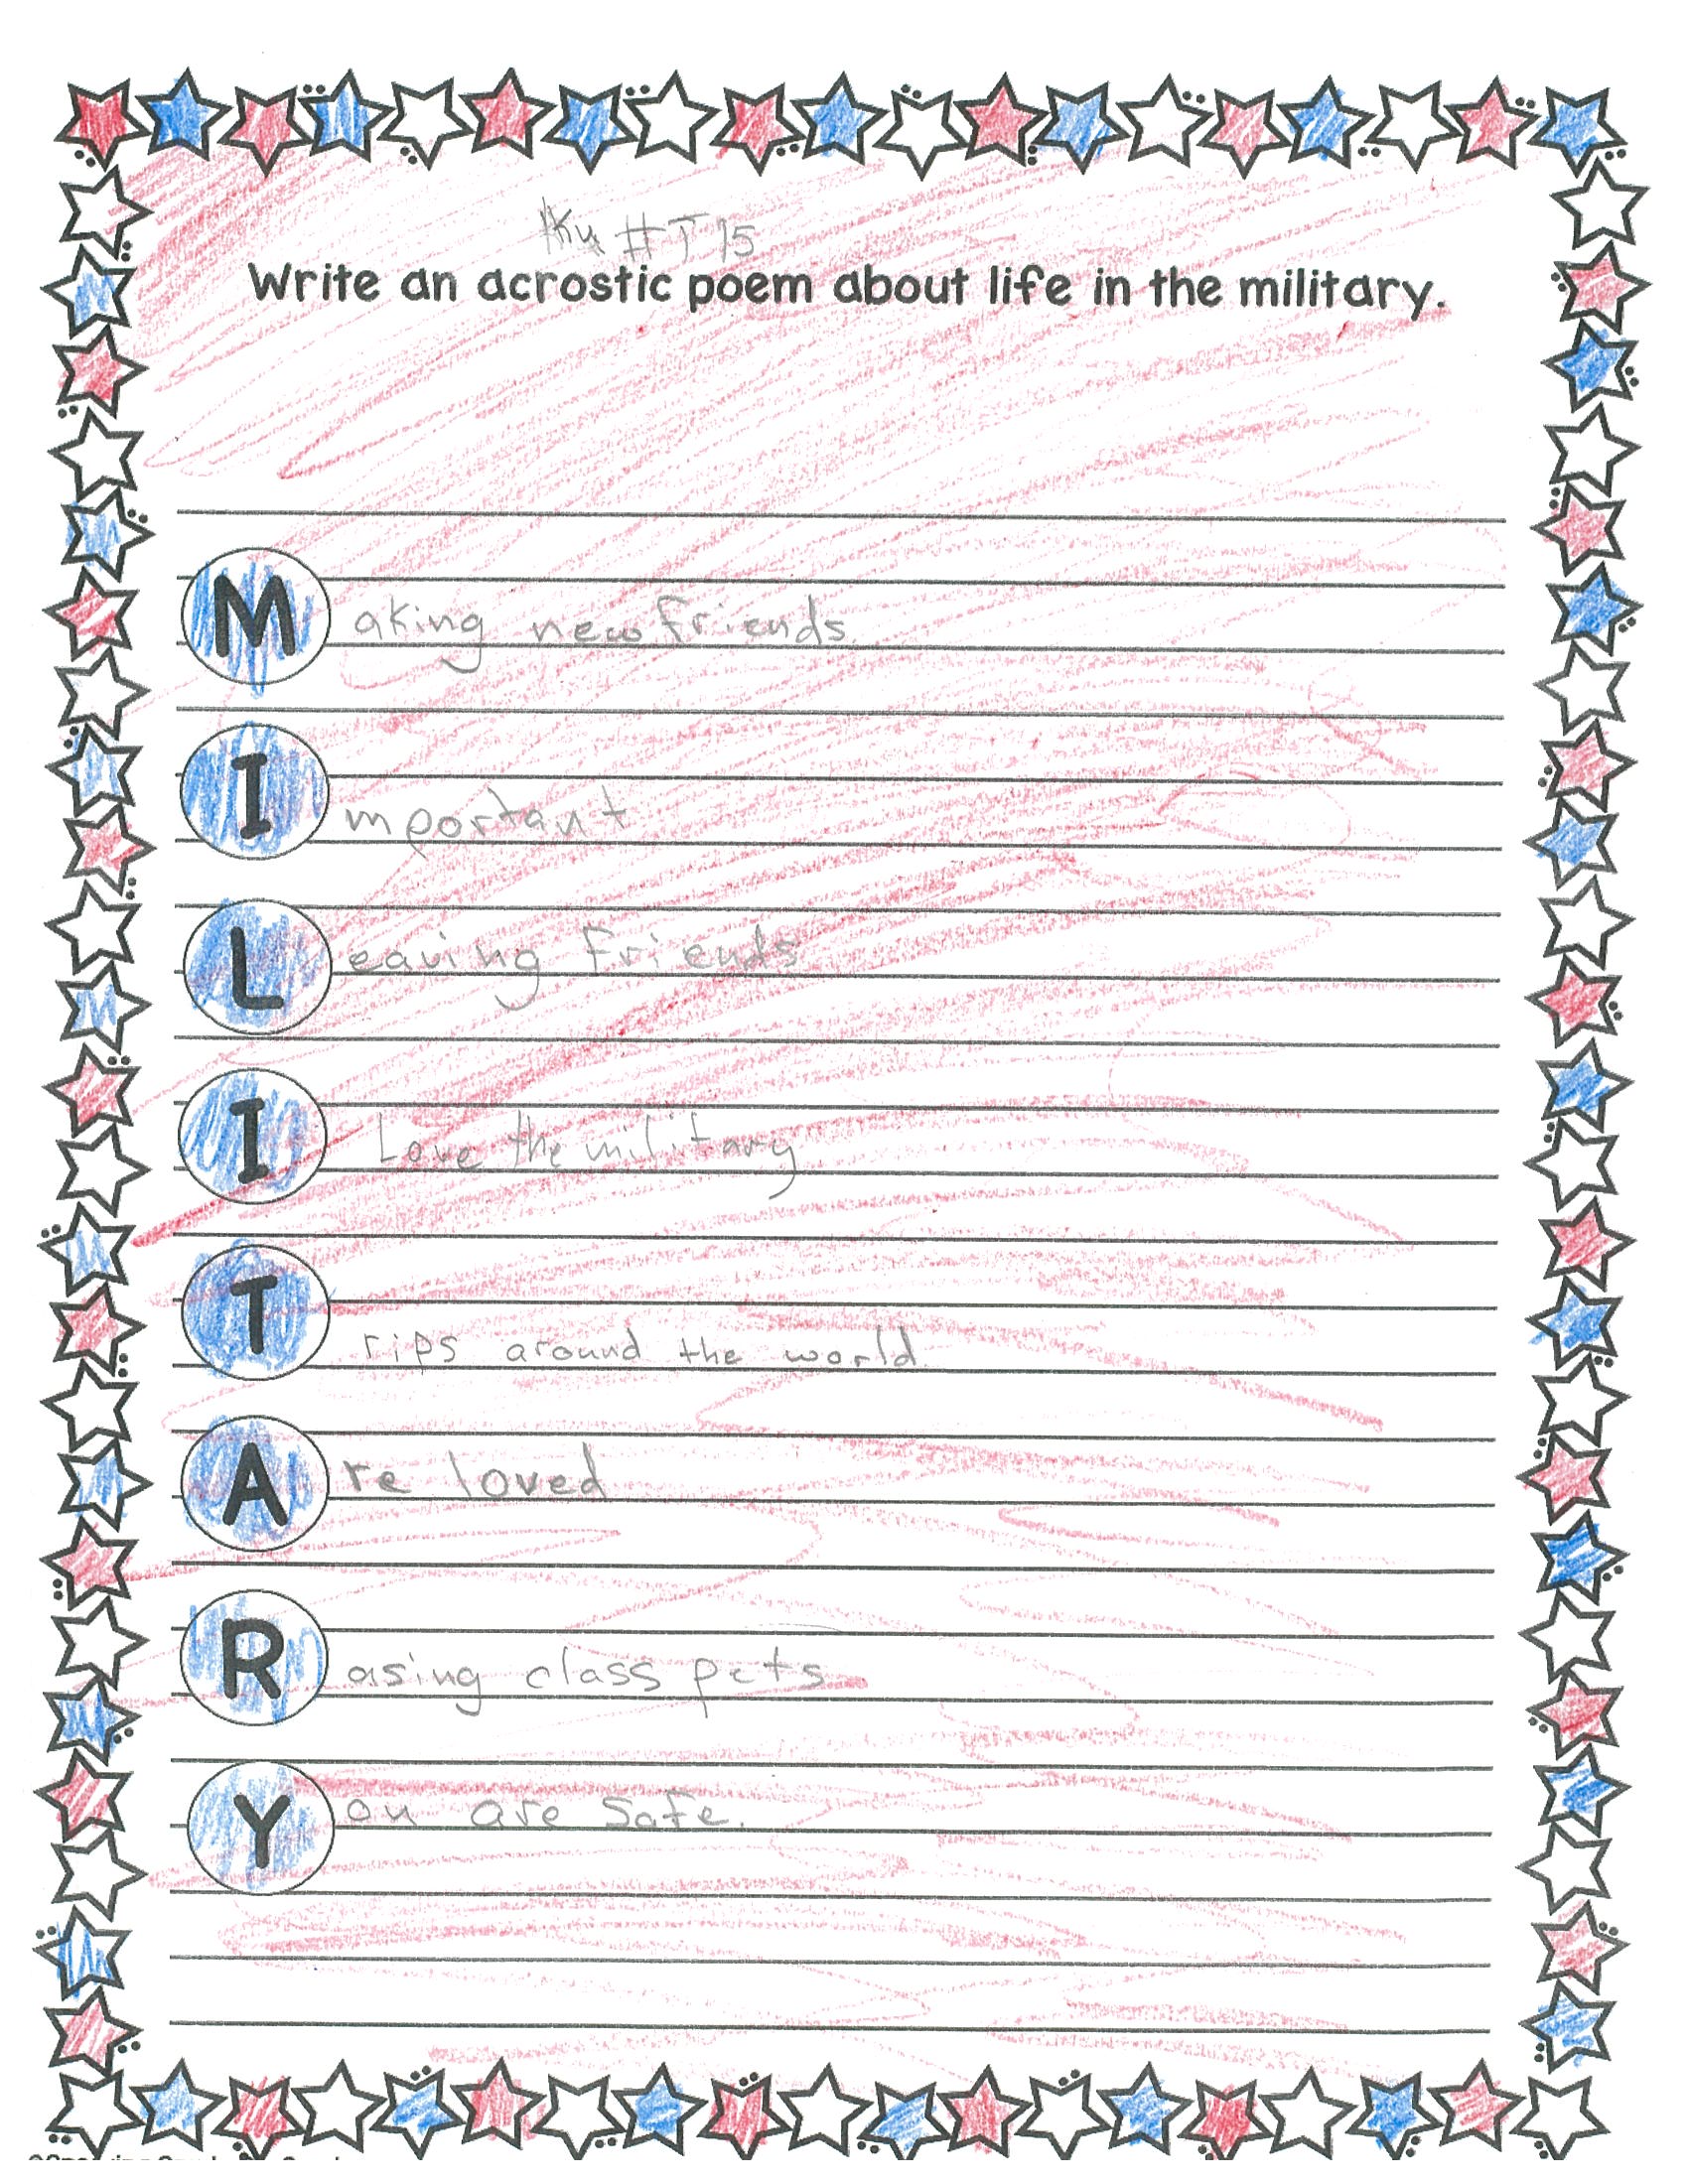 Ky #T15
Write an acrostic poem about life in the military.
Making new friends
Important
Leaving friends
I Love the military
Trips around the world.
Are loved
Rasing class pets
You are safe.